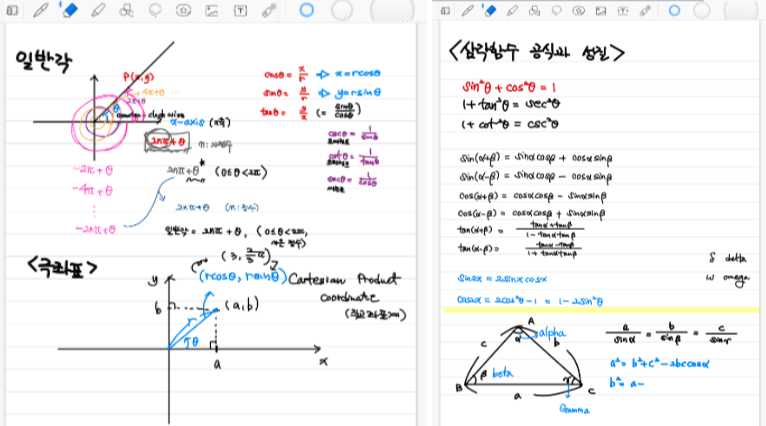 일반각
P(x,y)
4π+θ ...
2π+θ
θ
x-axis (x축)
2nπ+θ
n:
cosθ = x/r ⇨ x=rcosθ
sinθ = y/r ⇨ y=rsinθ
tanθ = y/x (= sinθ/cosθ)
cscθ = 1/sinθ
cotθ = 1/tanθ
secθ = 1/cosθ
-2π+θ
-4π+θ
⋮
-2nπ+θ
2nπ+θ (0≤θ<2π)
2nπ+θ (n:정수)
일반각 = 2nπ+θ, (0≤θ<2π,
n은 정수)
<극좌표>
(3, 2/3π)
(rcosθ, rsinθ) Cartesian Product
coordinate
y
b
(a,b)
r
θ
a
x
<삼각함수 공식과 성질>
sin²θ + cos²θ = 1
1+tan²θ = sec²θ
1+cot²θ = csc²θ
sin(α+β) = sinαcosβ + cosαsinβ
sin(α-β) = sinαcosβ - cosαsinβ
cos(α+β) = cosαcosβ - sinαsinβ
cos(α-β) = cosαcosβ + sinαsinβ
tan(α+β) = tanα+tanβ/1-tanαtanβ
tan(α-β) = tanα-tanβ/1+tanαtanβ
δ delta
ω omega
sin2x = 2sinxcosx
cos2x = 2cos²θ-1 = 1-2sin²θ
A
α alpha
c
b
B
β beta
γ
C
a
Gamma
a/sinα = b/sinβ = c/sinγ
a² = b²+c²-2bccosα
b² = a-